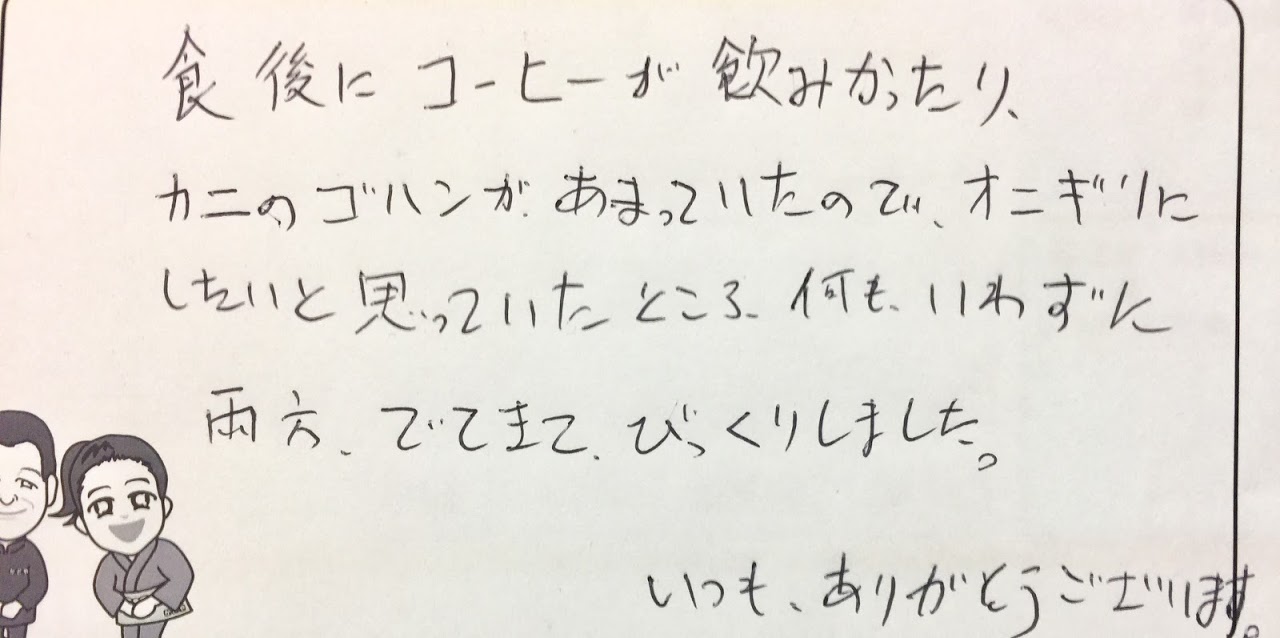 食後にコーヒーが飲みかったり、
カニのゴハンが、あまっていたので、オニギリに
したいと思っていたところ、何も、いわずに
両方、でてきて、びっくりしました。
いつも、ありがとうございます。